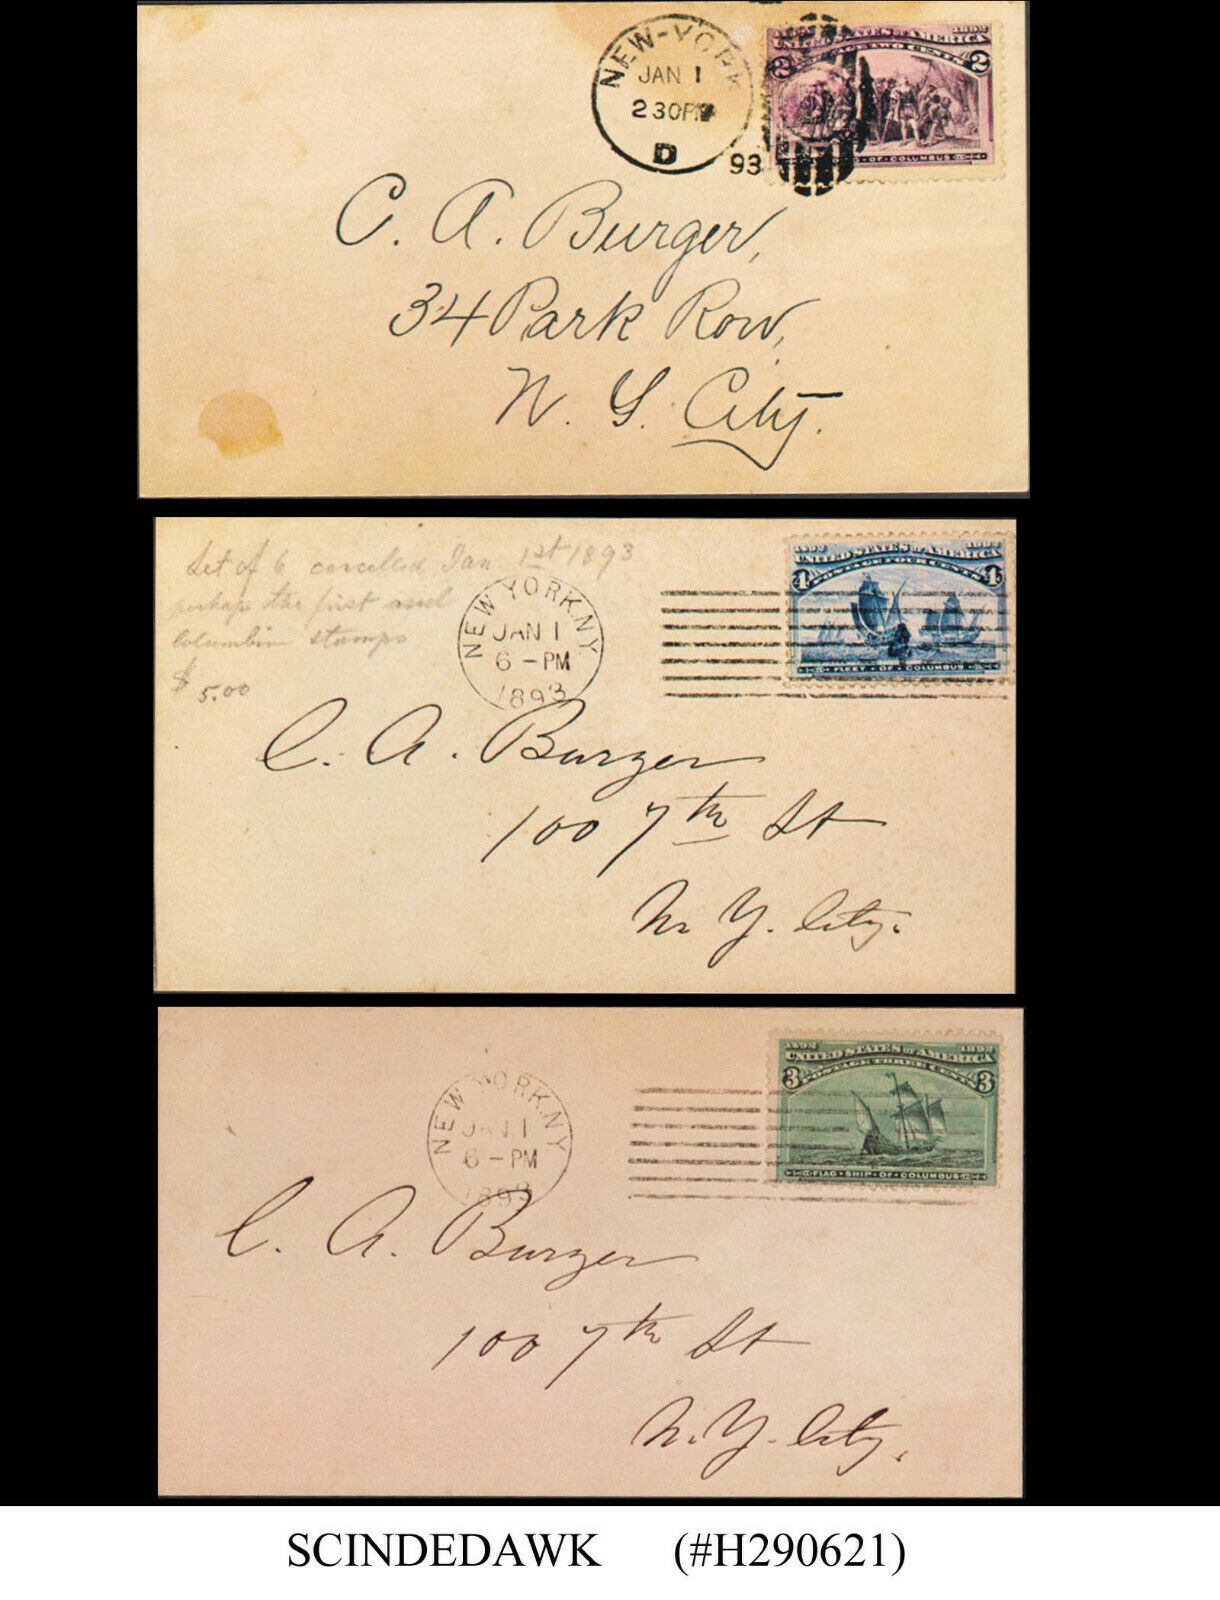 NEW-YORK
JAN 1
2 30PM
D
93
1892 1892
UNITED STATES OF AMERICA
POSTAGE TWO CENTS
2 2
OF COLUMBUS
C. A. Burger,
34 Park Row,
N. Y. City.
Set of 6 cancelled Jan 1st 1893
perhaps the first used
Columbian stamps
$ 5.00
NEW YORK, N.Y.
JAN 1
6 - PM
1893
1492 1892
UNITED STATES OF AMERICA
POSTAGE FOUR CENTS
4 4
FLEET OF COLUMBUS
C. A. Burger
100 7th St
N. Y. City.
NEW YORK, N.Y.
JAN 1
6 - PM
1893
1492 1892
UNITED STATES OF AMERICA
POSTAGE THREE CENTS
3 3
FLAG SHIP OF COLUMBUS
C. A. Burger
100 7th St
N. Y. City.
SCINDEDAWK (#H290621)